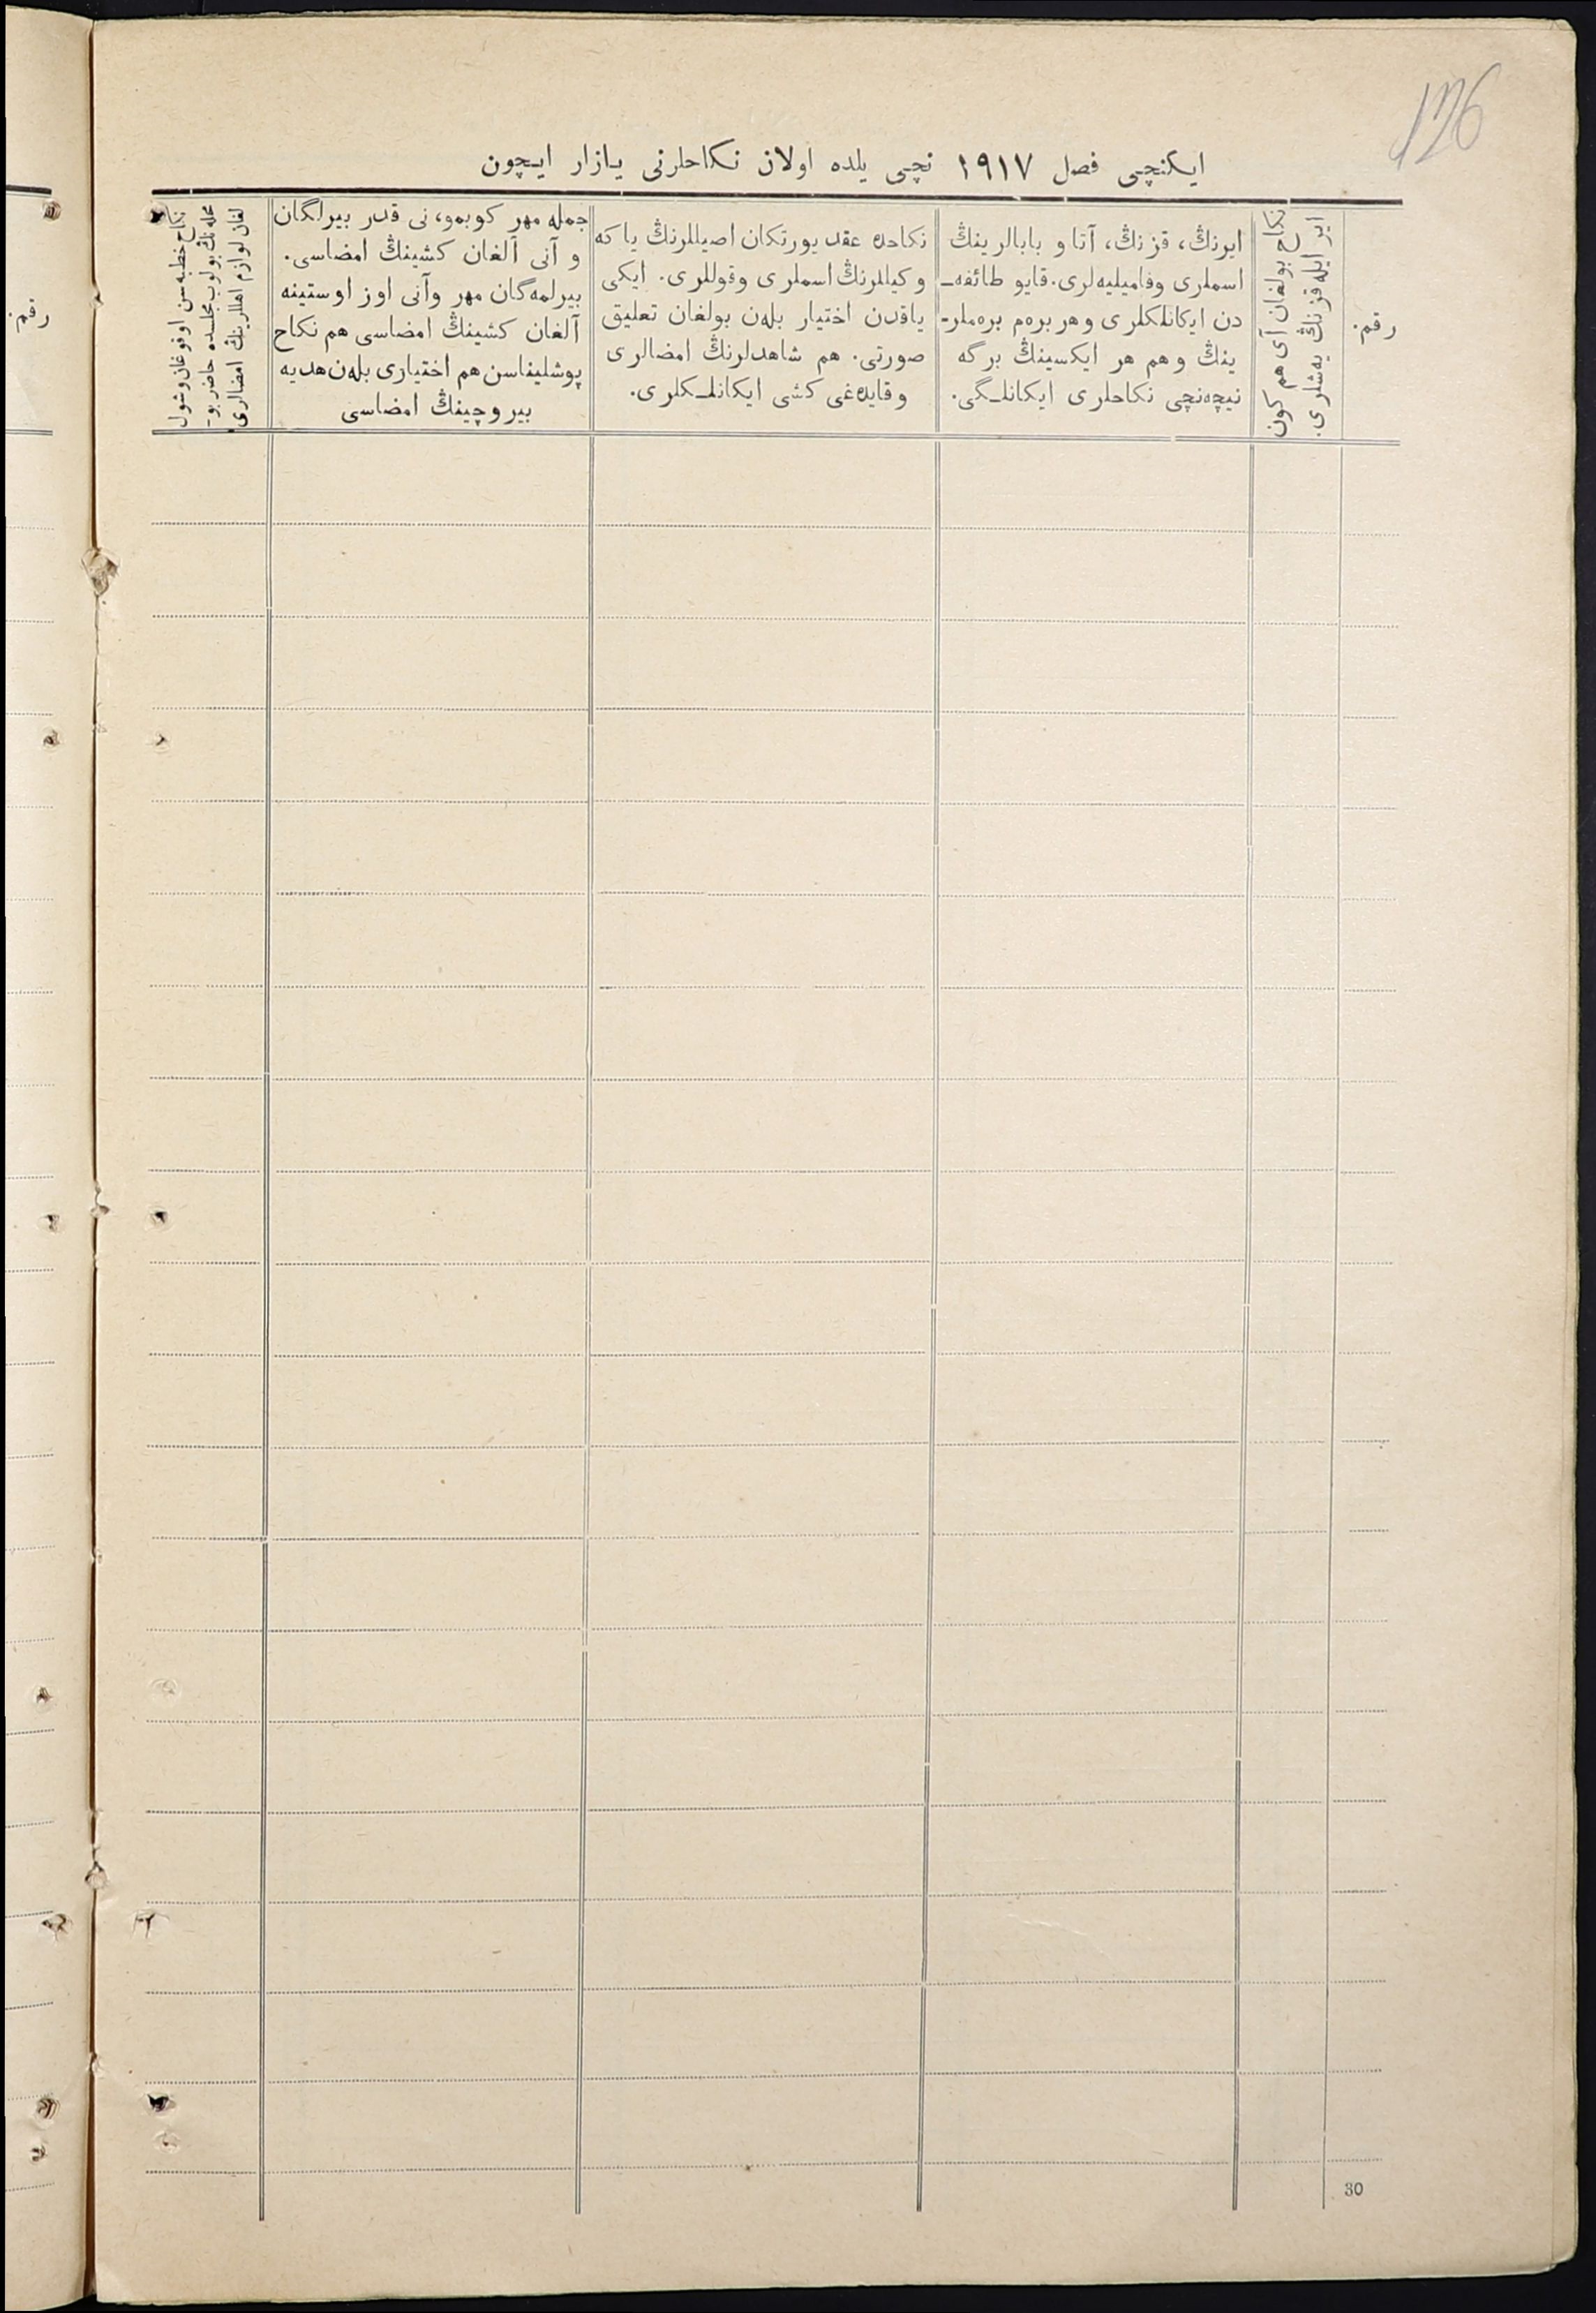 126
ایکنچی فصل ١٩١٧ نچی یلده اولان نکاحلرنی یازار ایچون
رقم.
ایر ایله قزنڭ یەشلری.
نکاح بولغان آی هم کون
ایرنڭ، قزنڭ، آتا و بابالرینڭ
اسملری وفامیلیه‌لری. قایو طائفه‌ـ
دن ایکانلکلری وهر برەم برەملرـ
ینڭ وهم هر ایکسینڭ برگه
نیچه‌نچی نکاحلری ایکانلـگی.
نکاحده عقد یورتکان اصیللرنڭ یا که
وکیللرنڭ اسملری وقوللری. ایکی
یاقدن اختیار بلەن بولغان تعلیق
صورتی. هم شاهدلرنڭ امضالری
وقایده‌غی کشی ایکانلـکلری.
جمله مهر کوبمو، نی قدر بیرلگان
و آنی آلغان کشینڭ امضاسی.
بیرلمه‌گان مهر وآنی اوز اوستینه
آلغان کشینڭ امضاسی هم نکاح
پوشلیناسن هم اختیاری بلەن هدیه
بیروچینڭ امضاسی
نکاح خطبه‌سن اوقوغان وشول
محله‌نڭ بولوب مجلسده حاضر بوـ
لغان لوازم اهللرینڭ امضالری
رقم.
30